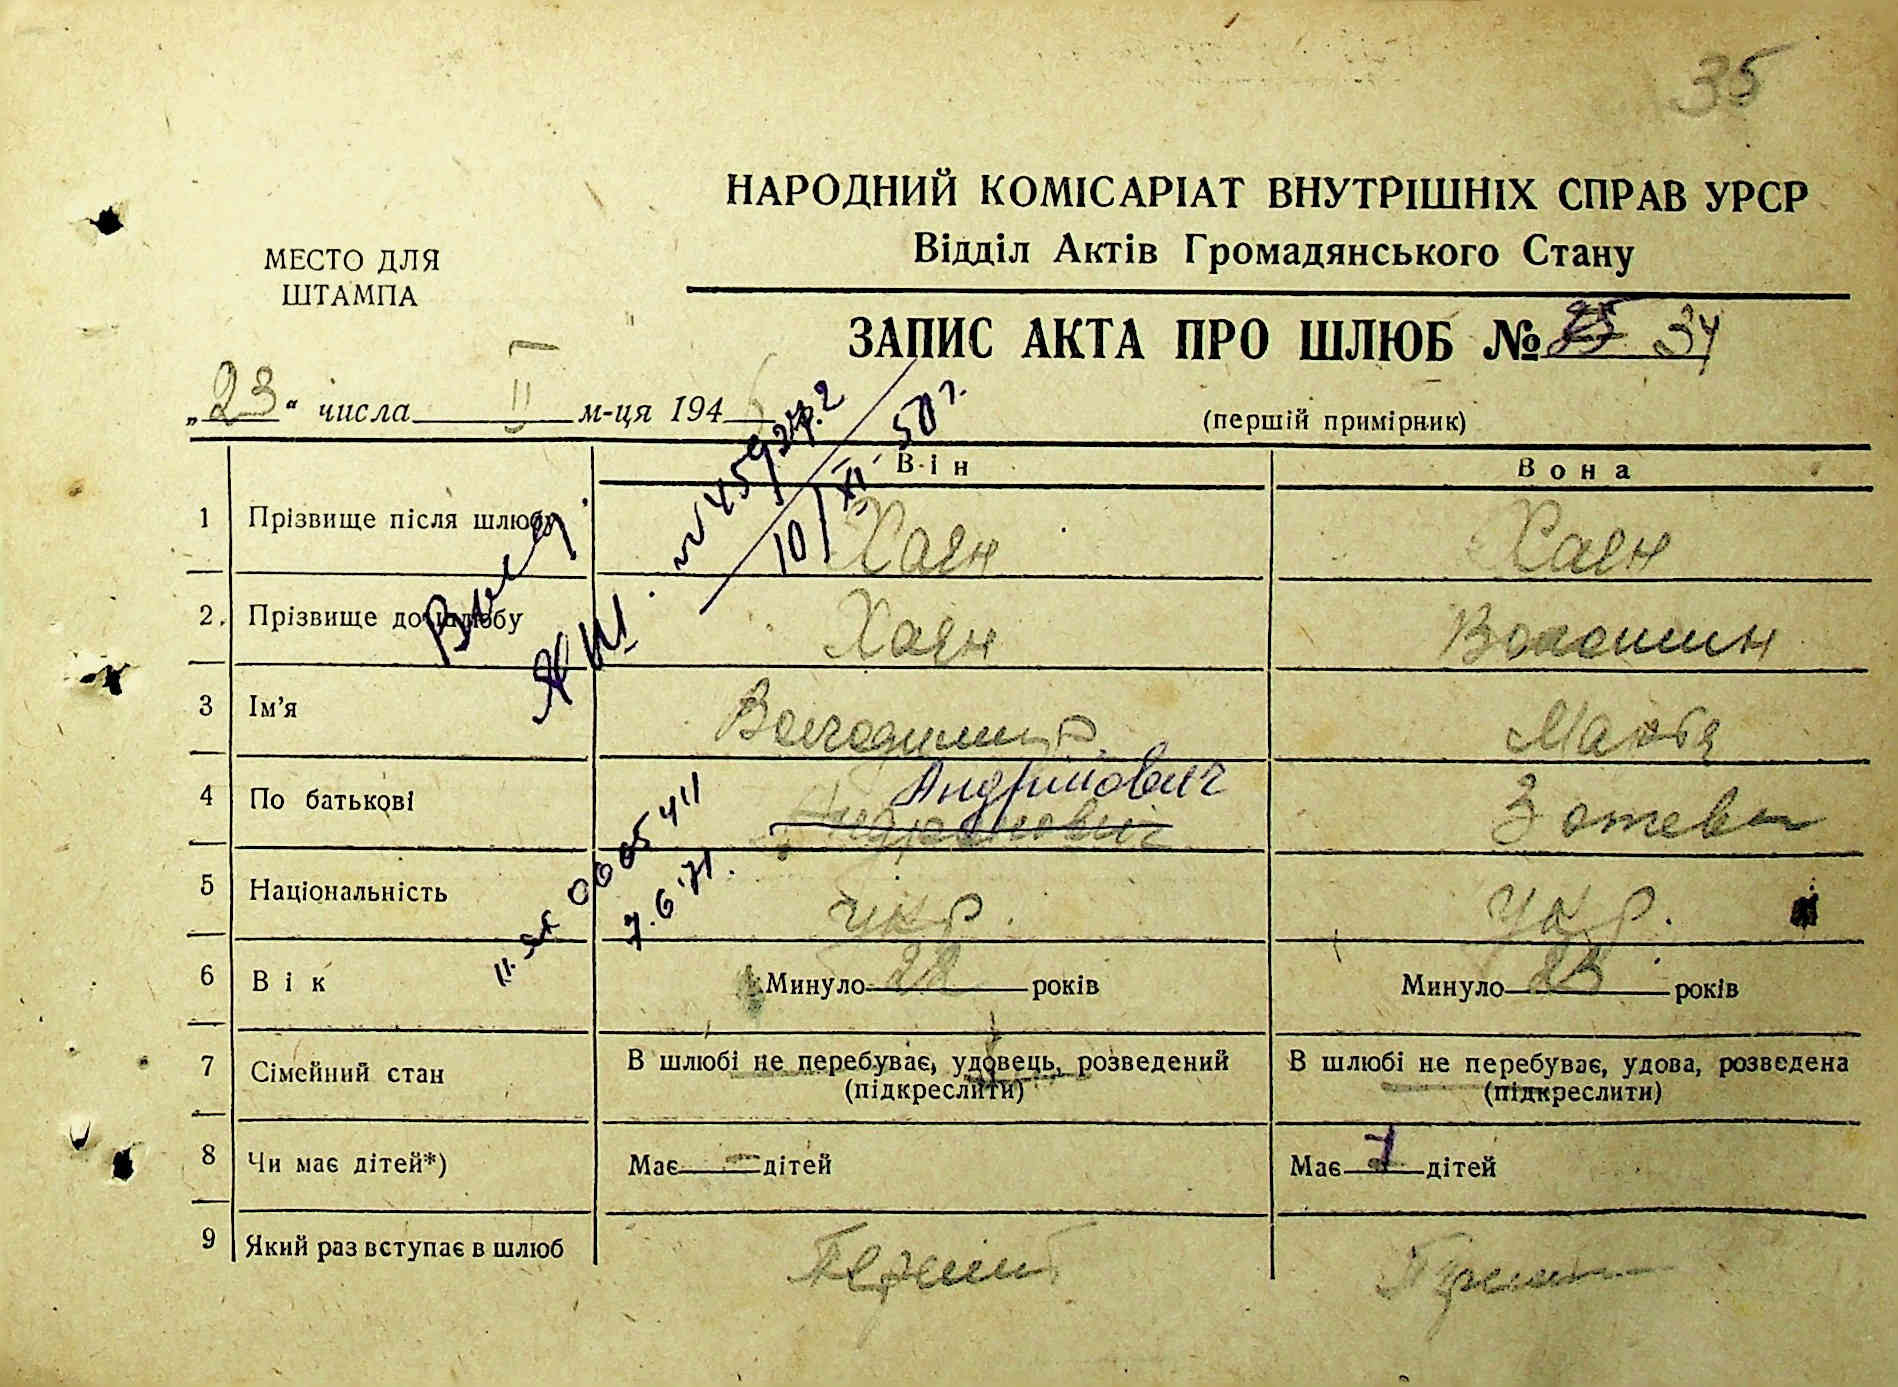 35
НАРОДНИЙ КОМІСАРІАТ ВНУТРІШНІХ СПРАВ УРСР
Відділ Актів Громадянського Стану
МЕСТО ДЛЯ
ШТАМПА
ЗАПИС АКТА ПРО ШЛЮБ № 35 34
„23“ числа II м-ця 194
(першій примірник)
Він Вона
1 Прізвище після шлюбу Хаєн Хаєн
2. Прізвище до шлюбу Хаєн Волошин
3 Ім'я Володимир Марія
4 По батькові Андрійович
5 Національність укр. Укр.
6 Вік Минуло 22 років Минуло 23 років
7 Сімейний стан В шлюбі не перебуває, удовець, розведений В шлюбі не перебуває, удова, розведена
(підкреслити) (підкреслити)
8 Чи має дітей*) Має — дітей Має 1 дітей
9 Який раз вступає в шлюб Перший Перший
10/XI 50 г.
7.6.71.